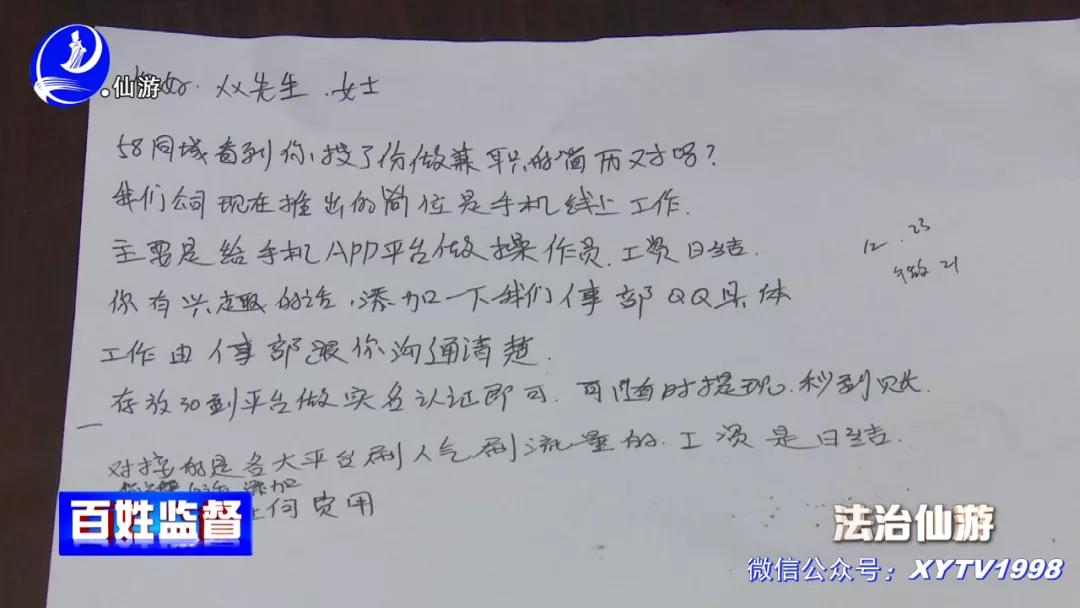 .仙游
你好. XX先生.女士
58同城看到你投了份做兼职的简历对吗?
我们公司现在推出的岗位是手机线上工作.
主要是给手机APP平台做操作员.工资日结.
12.23
你有兴趣的话,添加一下我们人事部QQ具体
工作由人事部跟你沟通清楚.
存放30到平台做实名认证即可.可随时提现.秒到账.
对接的是各大平台刷人气刷流量的.工资是日结.
添加
何费用
百姓监督
法治仙游
微信公众号:XYTV1998